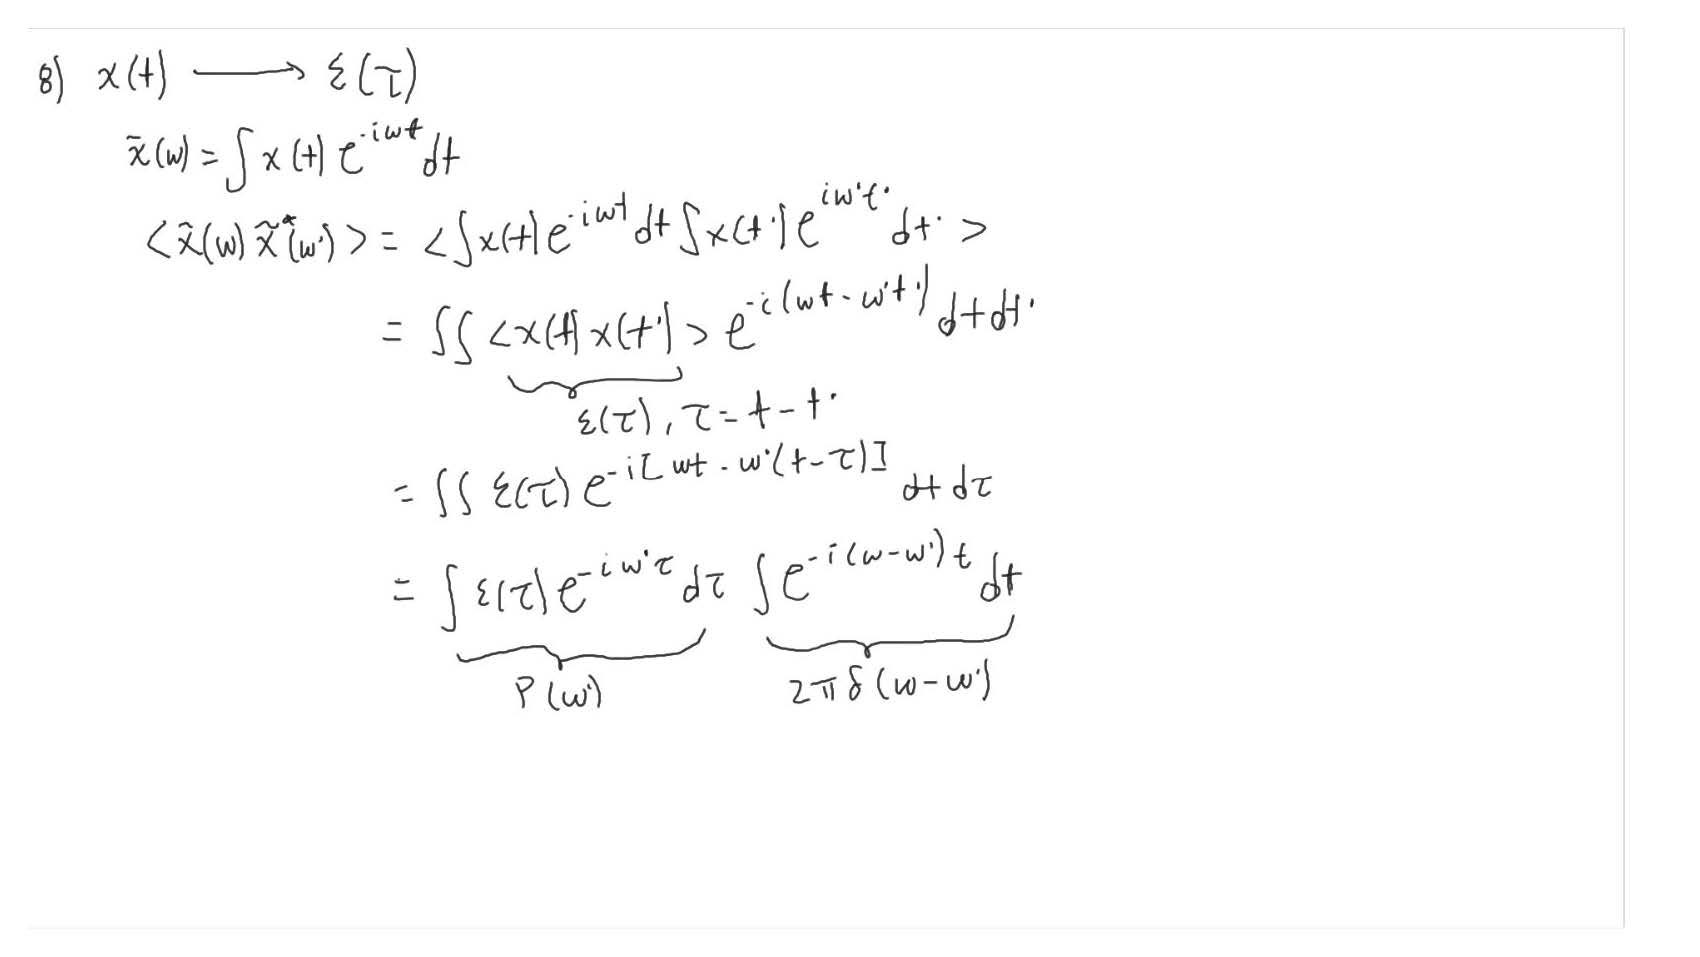 8) x(t) ⟶ ξ(τ)
x̃(ω) = ∫ x(t) e^{-iωt} dt
<x̃(ω) x̃*(ω')> = <∫x(t) e^{-iωt} dt ∫x(t') e^{iω't'} dt'>
= ∫∫ <x(t) x(t')> e^{-i(ωt - ω't')} dt dt'
ξ(τ), τ = t - t'
= ∫∫ ξ(τ) e^{-i[ωt - ω'(t-τ)]} dt dτ
= ∫ ξ(τ) e^{-iω'τ} dτ ∫ e^{-i(ω-ω')t} dt
P(ω') 2πδ(ω-ω')